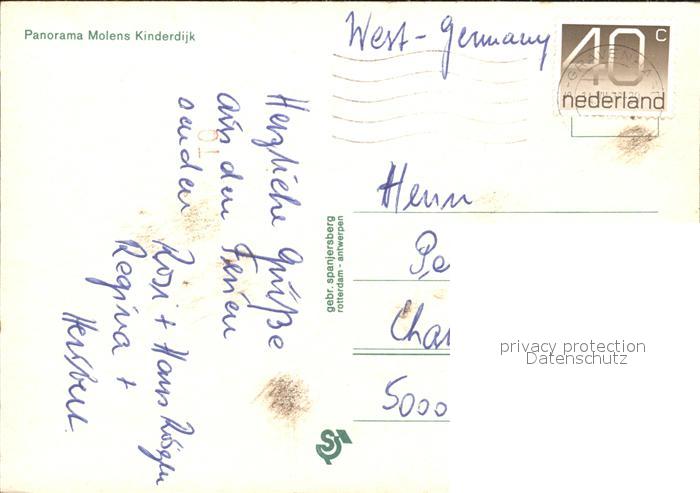 Panorama Molens Kinderdijk
West-Germany
40 c
nederland
Herzliche Grüße
aus den Ferien
senden Rosi + Hans Jürgen
Regina +
Herbert.
gebr. spanjersberg
rotterdam - antwerpen
Herrn
Pe
Char
5000
privacy protection
Datenschutz